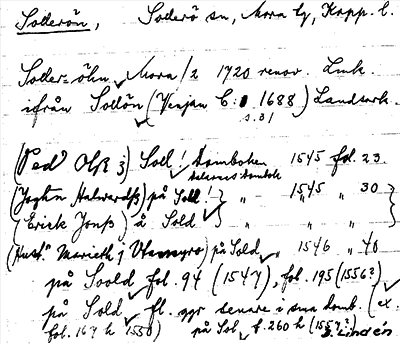 Sollerön, Sollerö sn, Mora tg, Kopp. l.
Soller-öhn Mora/2 1720 renov. Lmk.
ifrån Sollön (Venjan C: 1688) Landsark.
s. 31
(Ped Olss j) Soll! Domboken 1545 fol. 23.
Dalarnes dombok
(Joghn Halvardss) på Soll! } " 1545 " 30 }
(Erick Jonss) å Sold } " " " }
(Hust. Marieth j Vtameyro) på Sold, " 1546 " 40
på Soold fol. 94 (1547), fol. 195 (1556?)
på Sold fl. ggr senare i sma domb. (ex.
fol. 167 h 1550) på Sol, f. 260 h (1557?)
S. Lindén